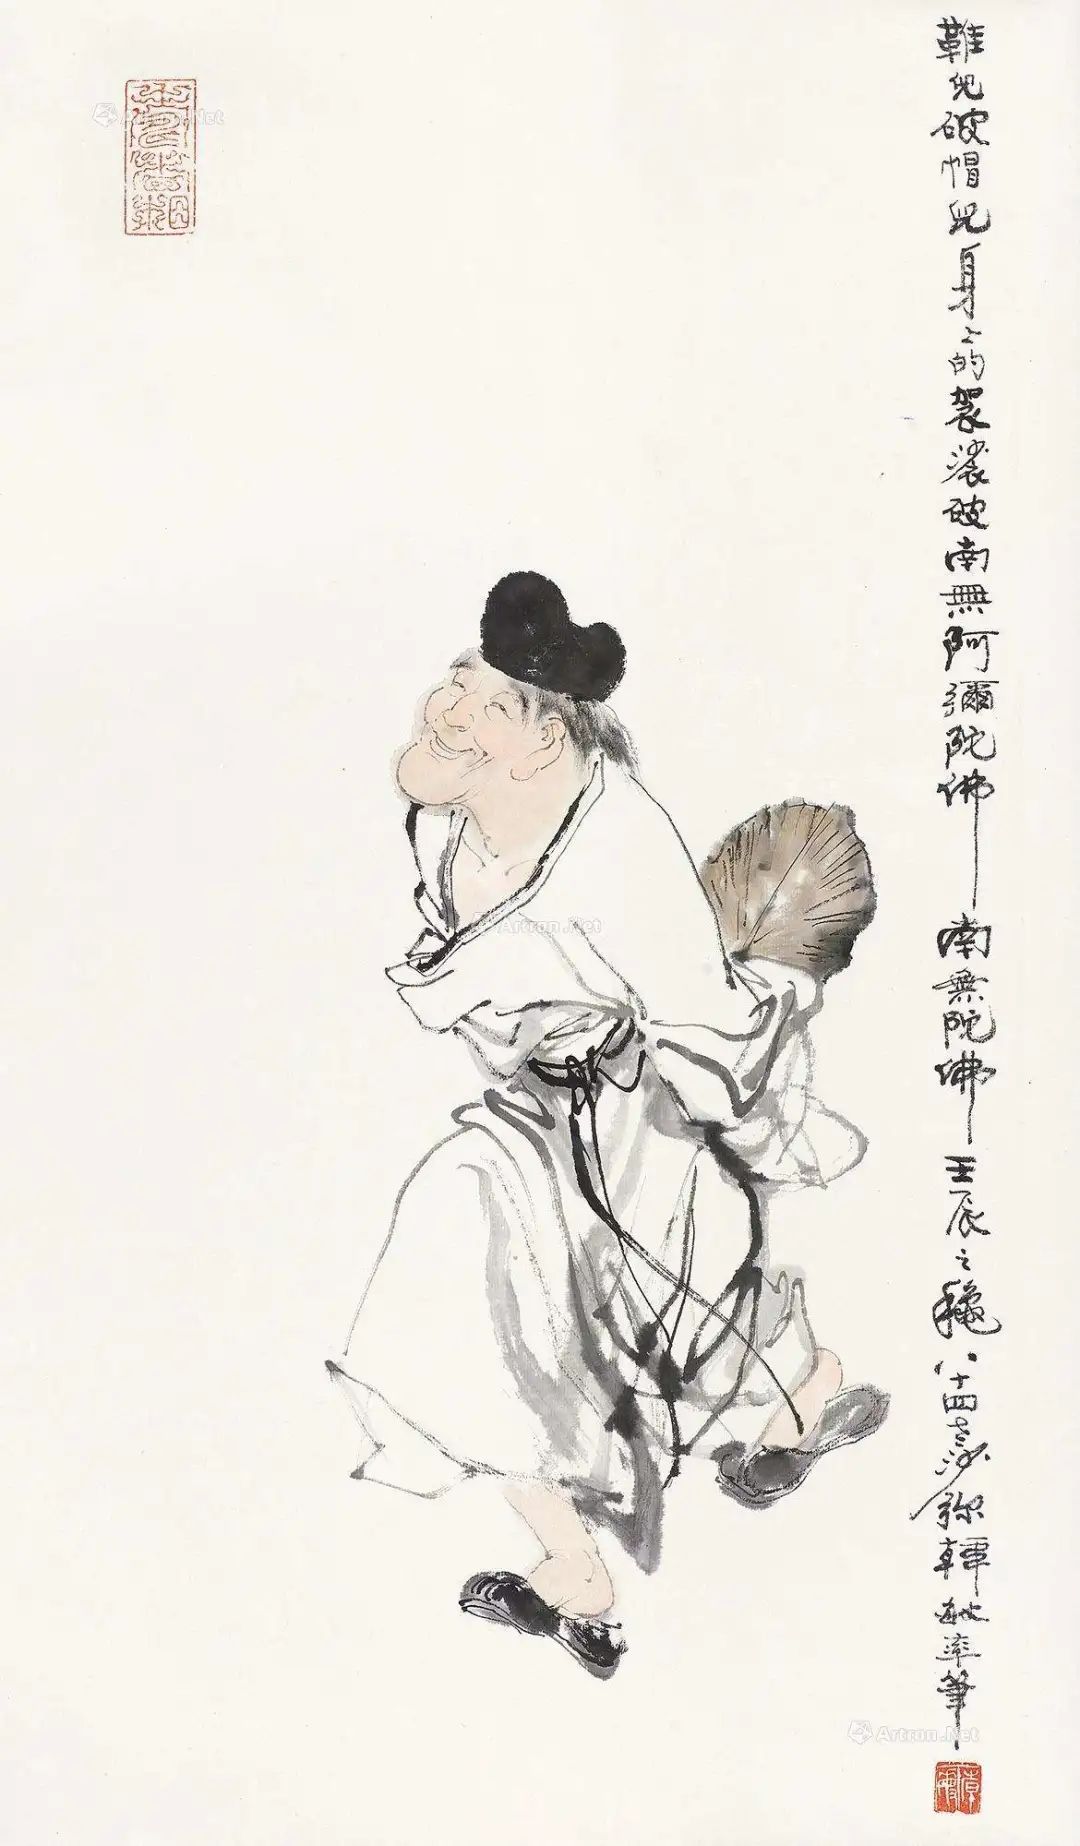 鞋兒破帽兒身上的袈裟破南無阿彌陀佛南無陀佛壬辰之穐八十四老沙弥韓敏率筆
Artron.Net
Artron.Net
Artron.Net